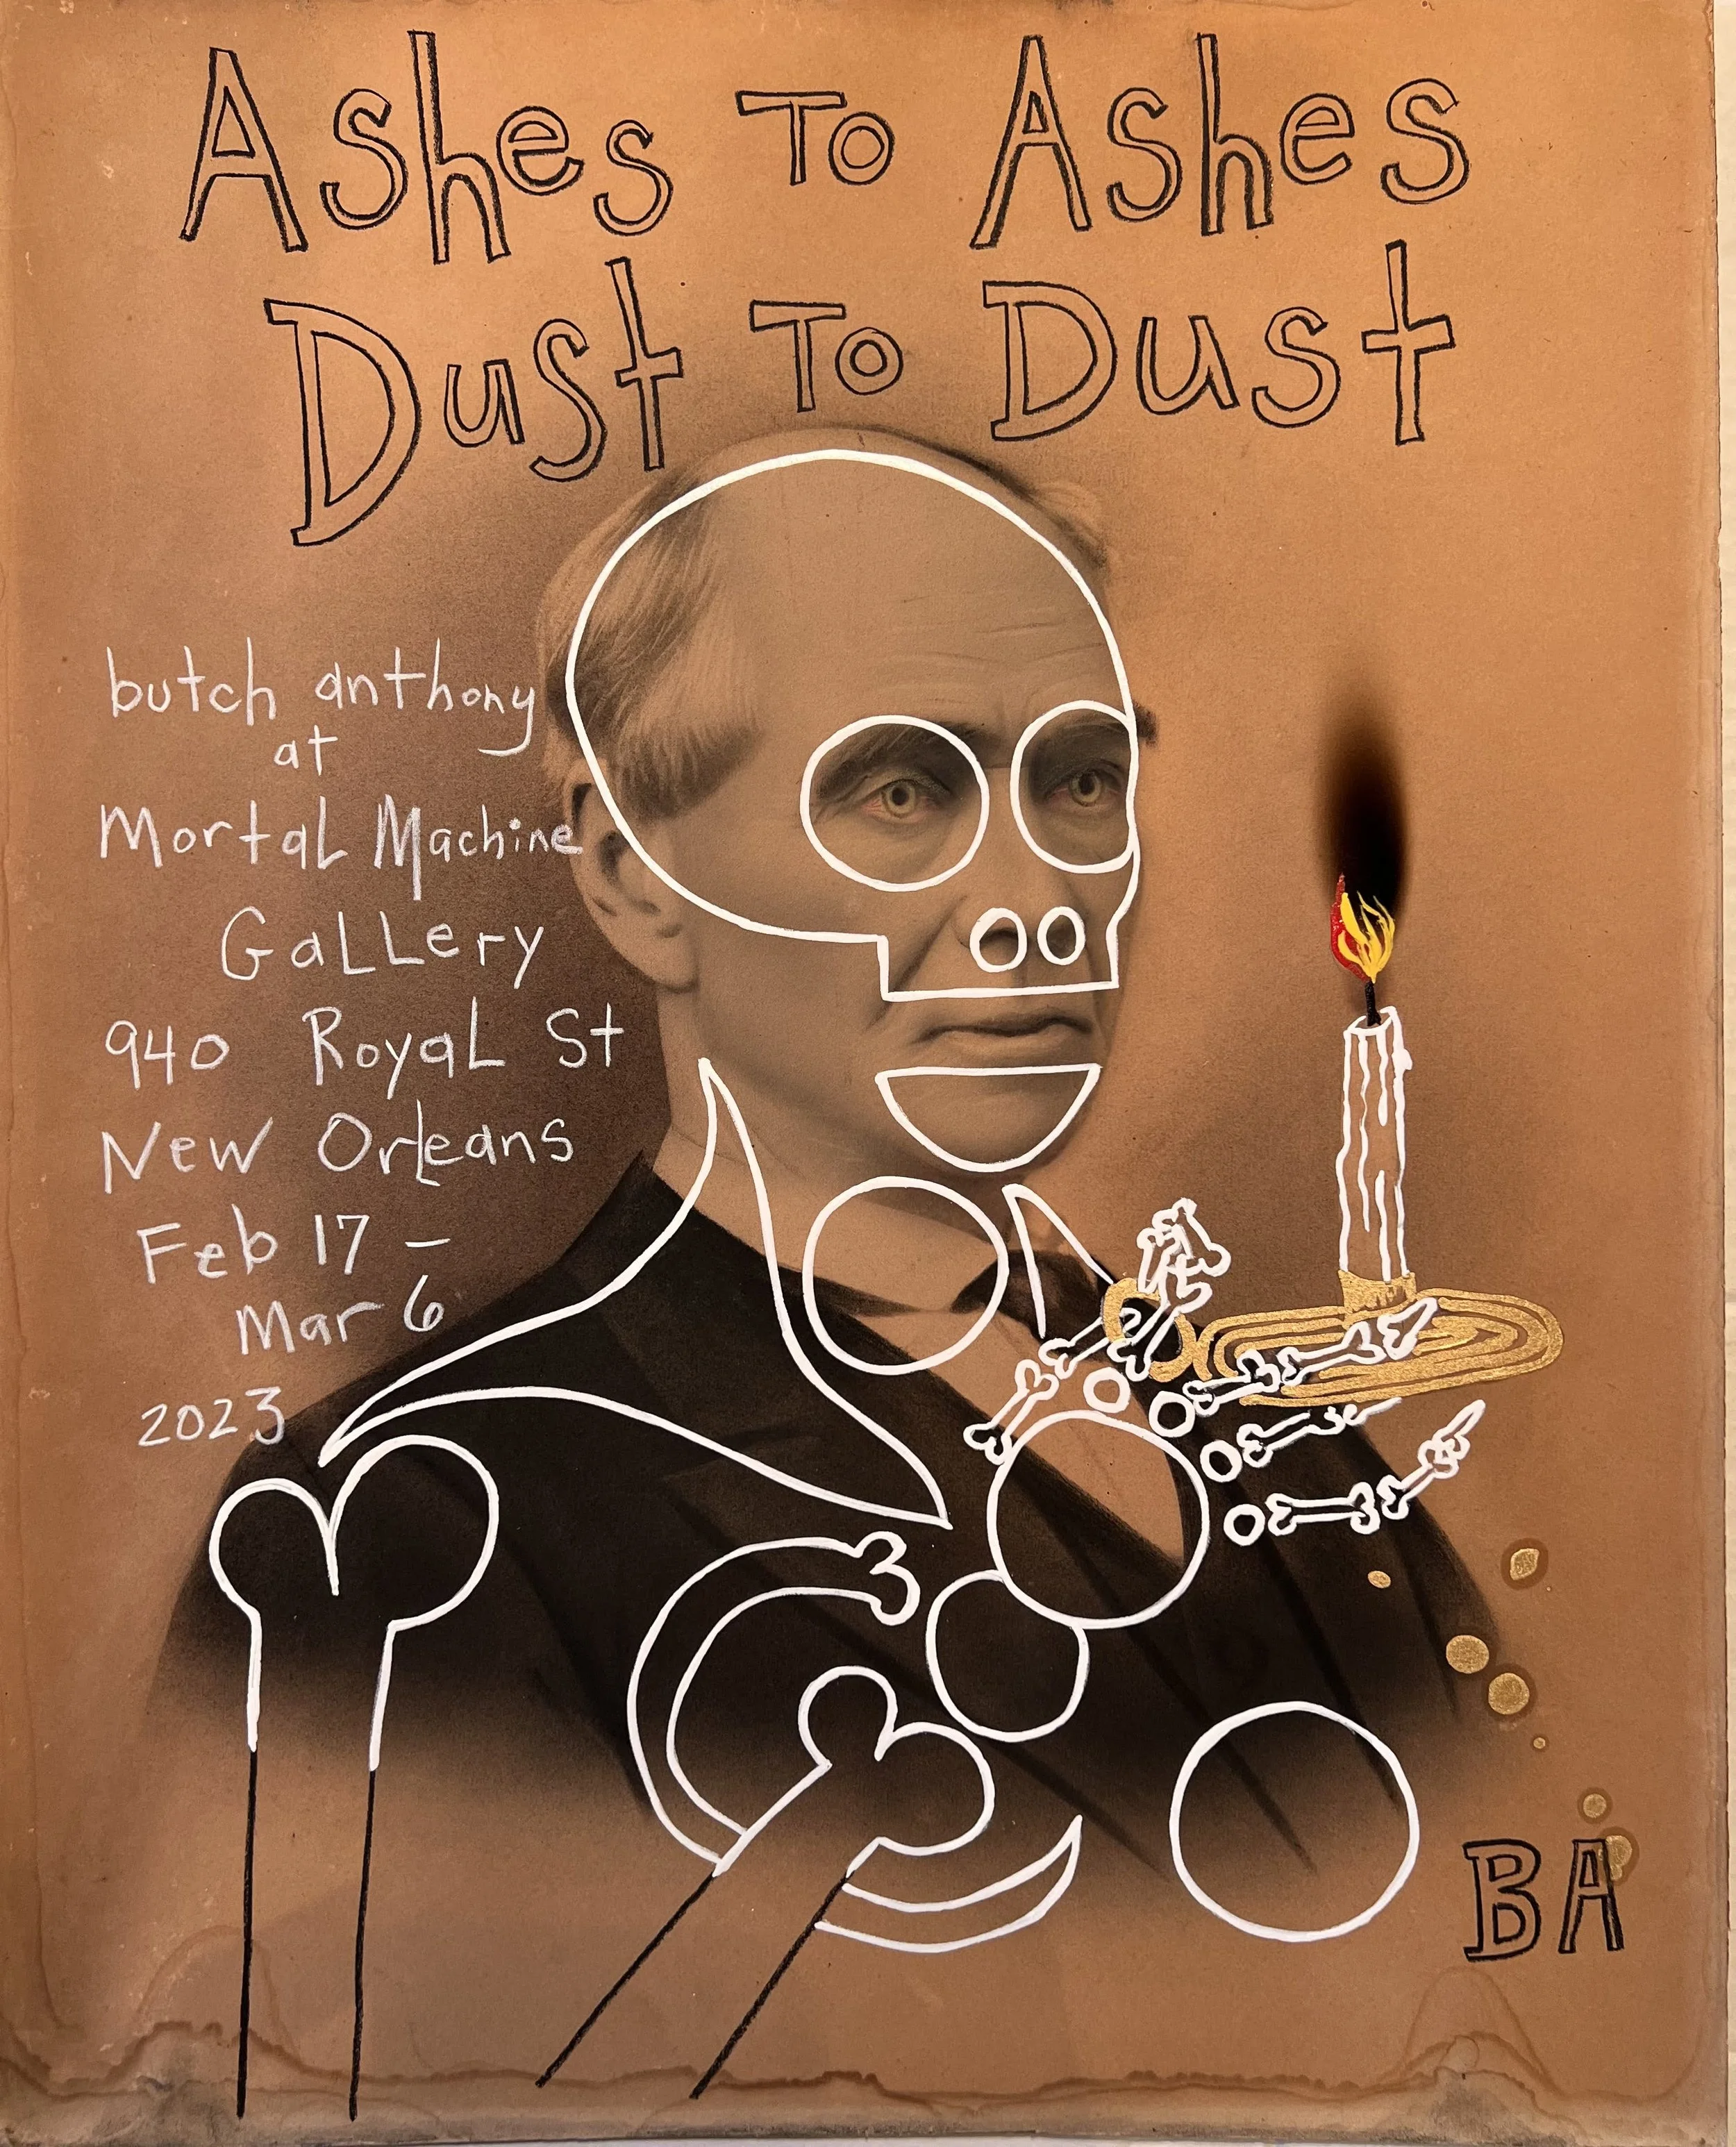 Ashes To Ashes
Dust To Dust
butch anthony
at
Mortal Machine
Gallery
940 Royal St
New Orleans
Feb 17 -
Mar 6
2023
BA